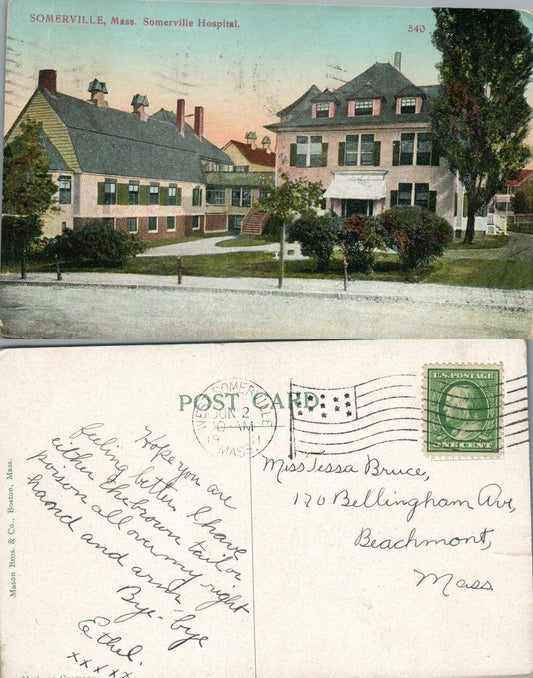 SOMERVILLE, Mass. Somerville Hospital.
540
POST CARD.
WEST SOMERVILLE
JUN 2
AM
19 11
MASS.
U.S. POSTAGE
ONE CENT
Hope you are
feeling better. I have
either the brown tailor
poison all over my right
hand and arm.
Bye-bye
Ethel.
xxxxx
Miss Tessa Bruce,
170 Bellingham Av,
Beachmont,
Mass
Mason Bros. & Co., Boston, Mass.